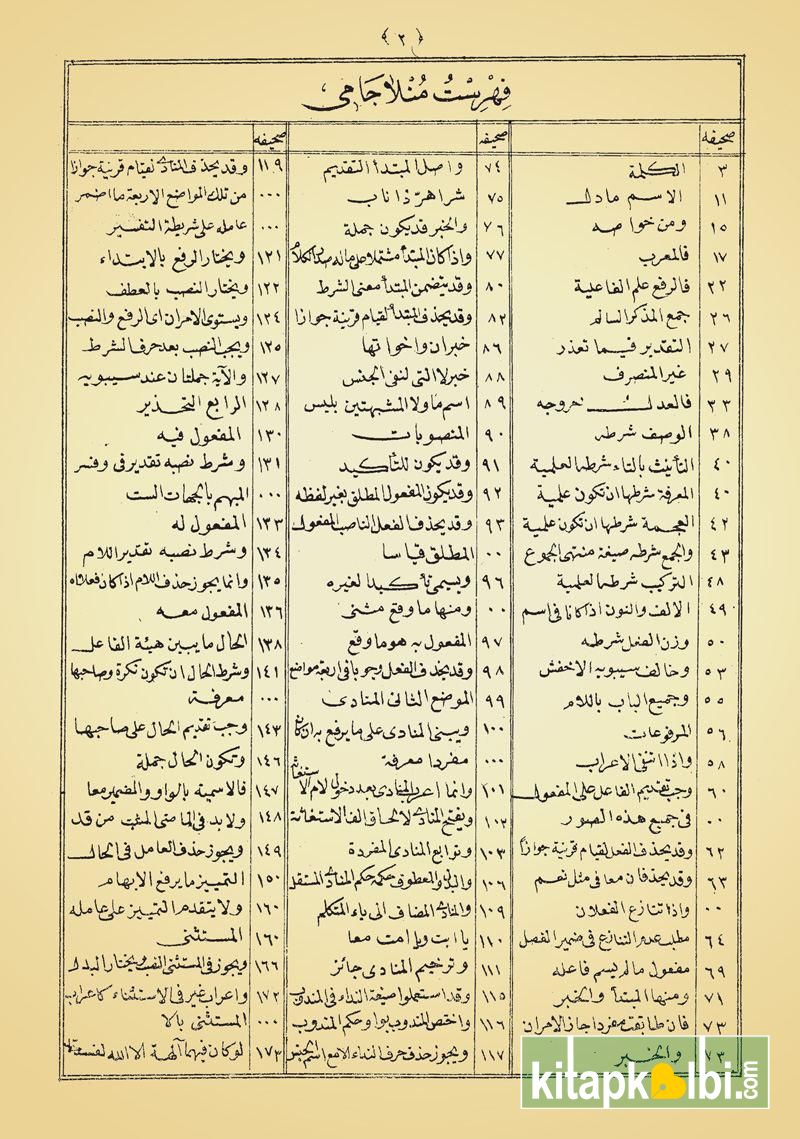 ﴿ ٢ ﴾
فِهْرِسْتُ مُنْلَا جَامِى
صحيفه
٣ الكلمة
١١ الاسم مادل
١٥ ومن خواصه
١٧ فالمعرب
٢٢ فالرفع علم الفاعلية
٢٦ جمع المذكر السالم
٢٧ التقدير فيما تعذر
٢٩ غير المنصرف
٣٣ فالعدل خروجه
٣٨ الوصف شرطه
٤٠ التأنيث بالتاء شرطه العلمية
٤٠ المعرفة شرطها ان تكون علمية
٤٢ العجمة شرطها ان تكون علمية
٤٣ والجمع شرطه صيغة منتهى الجموع
٤٨ التركيب شرطه العلمية
٤٩ الالف والنون اذا كانا فى اسم
٥٠ وزن الفعل شرطه
٥٣ وخالف سيبويه الاخفش
٥٥ وجميع الباب باللام
٥٦ المرفوعات
٥٨ واذا انتفى الاعراب
٦٠ وجب تقديم الفاعل على المفعول
٠٠ فى جميع هذه الصور
٦٢ وقد يحذف الفعل لقيام قرينة جوازاً
٦٣ وقد يحذفان معا فى مثل نعم
٠٠ واذا تنازع الفعلان
٦٤ مطلب عدم التنازع فى ضمير الفصل
٦٩ مفعول مالم يسم فاعله
٧١ ومنها المبتدأ والخبر
٧٣ فان طابقت مفردا جاز الامران
٧٣ والخبر
صحيفه
٧٤ واصل المبتدأ التقديم
٧٥ شر اهرّ ذا ناب
٧٦ والخبر قد يكون جملة
٧٧ واذا كان المبتدأ مشتملا على ماله صدر الكلام
٨٠ وقد يتضمن المبتدأ معنى الشرط
٨٢ وقد يحذف المبتدأ لقيام قرينة جوازا
٨٦ خبر ان واخواتها
٨٨ خبر لا التى لنفى الجنس
٨٩ اسم ما ولا المشبهتين بليس
٩٠ المنصوبات
٩١ وقد يكون للتأكيد
٩٢ وقد يكون المفعول المطلق بغير لفظه
٩٣ وقد يحذف الفعل الناصب المفعول
٠٠ المطلق قياسا
٩٦ ويسمى تأكيدا لغيره
٠٠ ومنها ما وقع مثنى
٩٧ المفعول به هو ما وقع
٩٨ وقد يحذف الفعل وجوبا فى اربعة مواضع
٩٩ الموضع الثانى المنادى
١٠٠ ويبنى المنادى على ما يرفع به ان كان
٠٠٠ مفردا معرفة
١٠١ وانما اعرب المنادى بعد دخول لام الاستغاثة
١٠٢ ويفتح المنادى لالحاق الف الاستغاثة
١٠٣ وتوابع المنادى المفردة
١٠٦ والبدل والمعطوف حكمه حكم المنادى المستقل
١٠٩ والمنادى المضاف الى ياء المتكلم
١١٠ يا ابت ويا امت معا
١١١ وترخيم المنادى جائز
١١٥ وقد استعملوا صيغة النداء فى المندوب
١١٦ واختص المندوب بوا وحكم المندوب
١١٧ ويجوز حذف حرف النداء الا مع اسم الجنس
صحيفه
١١٩ وقد يحذف المنادى لقيام قرينة جوازا
٠٠٠ من تلك المواضع الاربعة ما اضمر
٠٠٠ عامله على شريطة التفسير
١٢١ ويختار الرفع بالابتداء
١٢٢ ويختار النصب بالعطف
١٢٤ ويستوى الامران اى الرفع والنصب
١٢٥ ويجب النصب بعد حرف الشرط
١٢٧ والآية جملتان عند سيبويه
١٢٨ الرابع التحذير
١٣٠ المفعول فيه
١٣١ وشرط نصبه تقدير فى وفسر
٠٠٠ المبهم بالجهات الست
١٣٣ المفعول له
١٣٤ وشرط نصبه تقدير اللام
١٣٥ وانما يجوز حذف اللام اذا كان فعلا
١٣٦ المفعول معه
١٣٨ الحال ما يبين هيئة الفاعل
١٤١ وشرط الحال ان تكون نكرة وصاحبها
٠٠٠ معرفة
١٤٣ وجب تقديم الحال على صاحبها
١٤٦ وتكون الحال جملة
١٤٧ فالاسمية بالواو والضمير معا
١٤٨ ولا بد فى الماضى المثبت من قد
١٤٩ ويجوز حذف العامل فى الحال
١٥٠ التمييز ما يرفع الابهام
١٦٠ ولا يتقدم التمييز على عامله
١٦٠ المستثنى
١٦٦ ويجوز فى المستثنى النصب ويختار البدل
١٧٢ واعراب غير فى الاستثناء كاعراب
٠٠٠ المستثنى بالا
١٧٣ لو كان فيهما آلهة الا الله لفسدتا
kitapkalbi.com